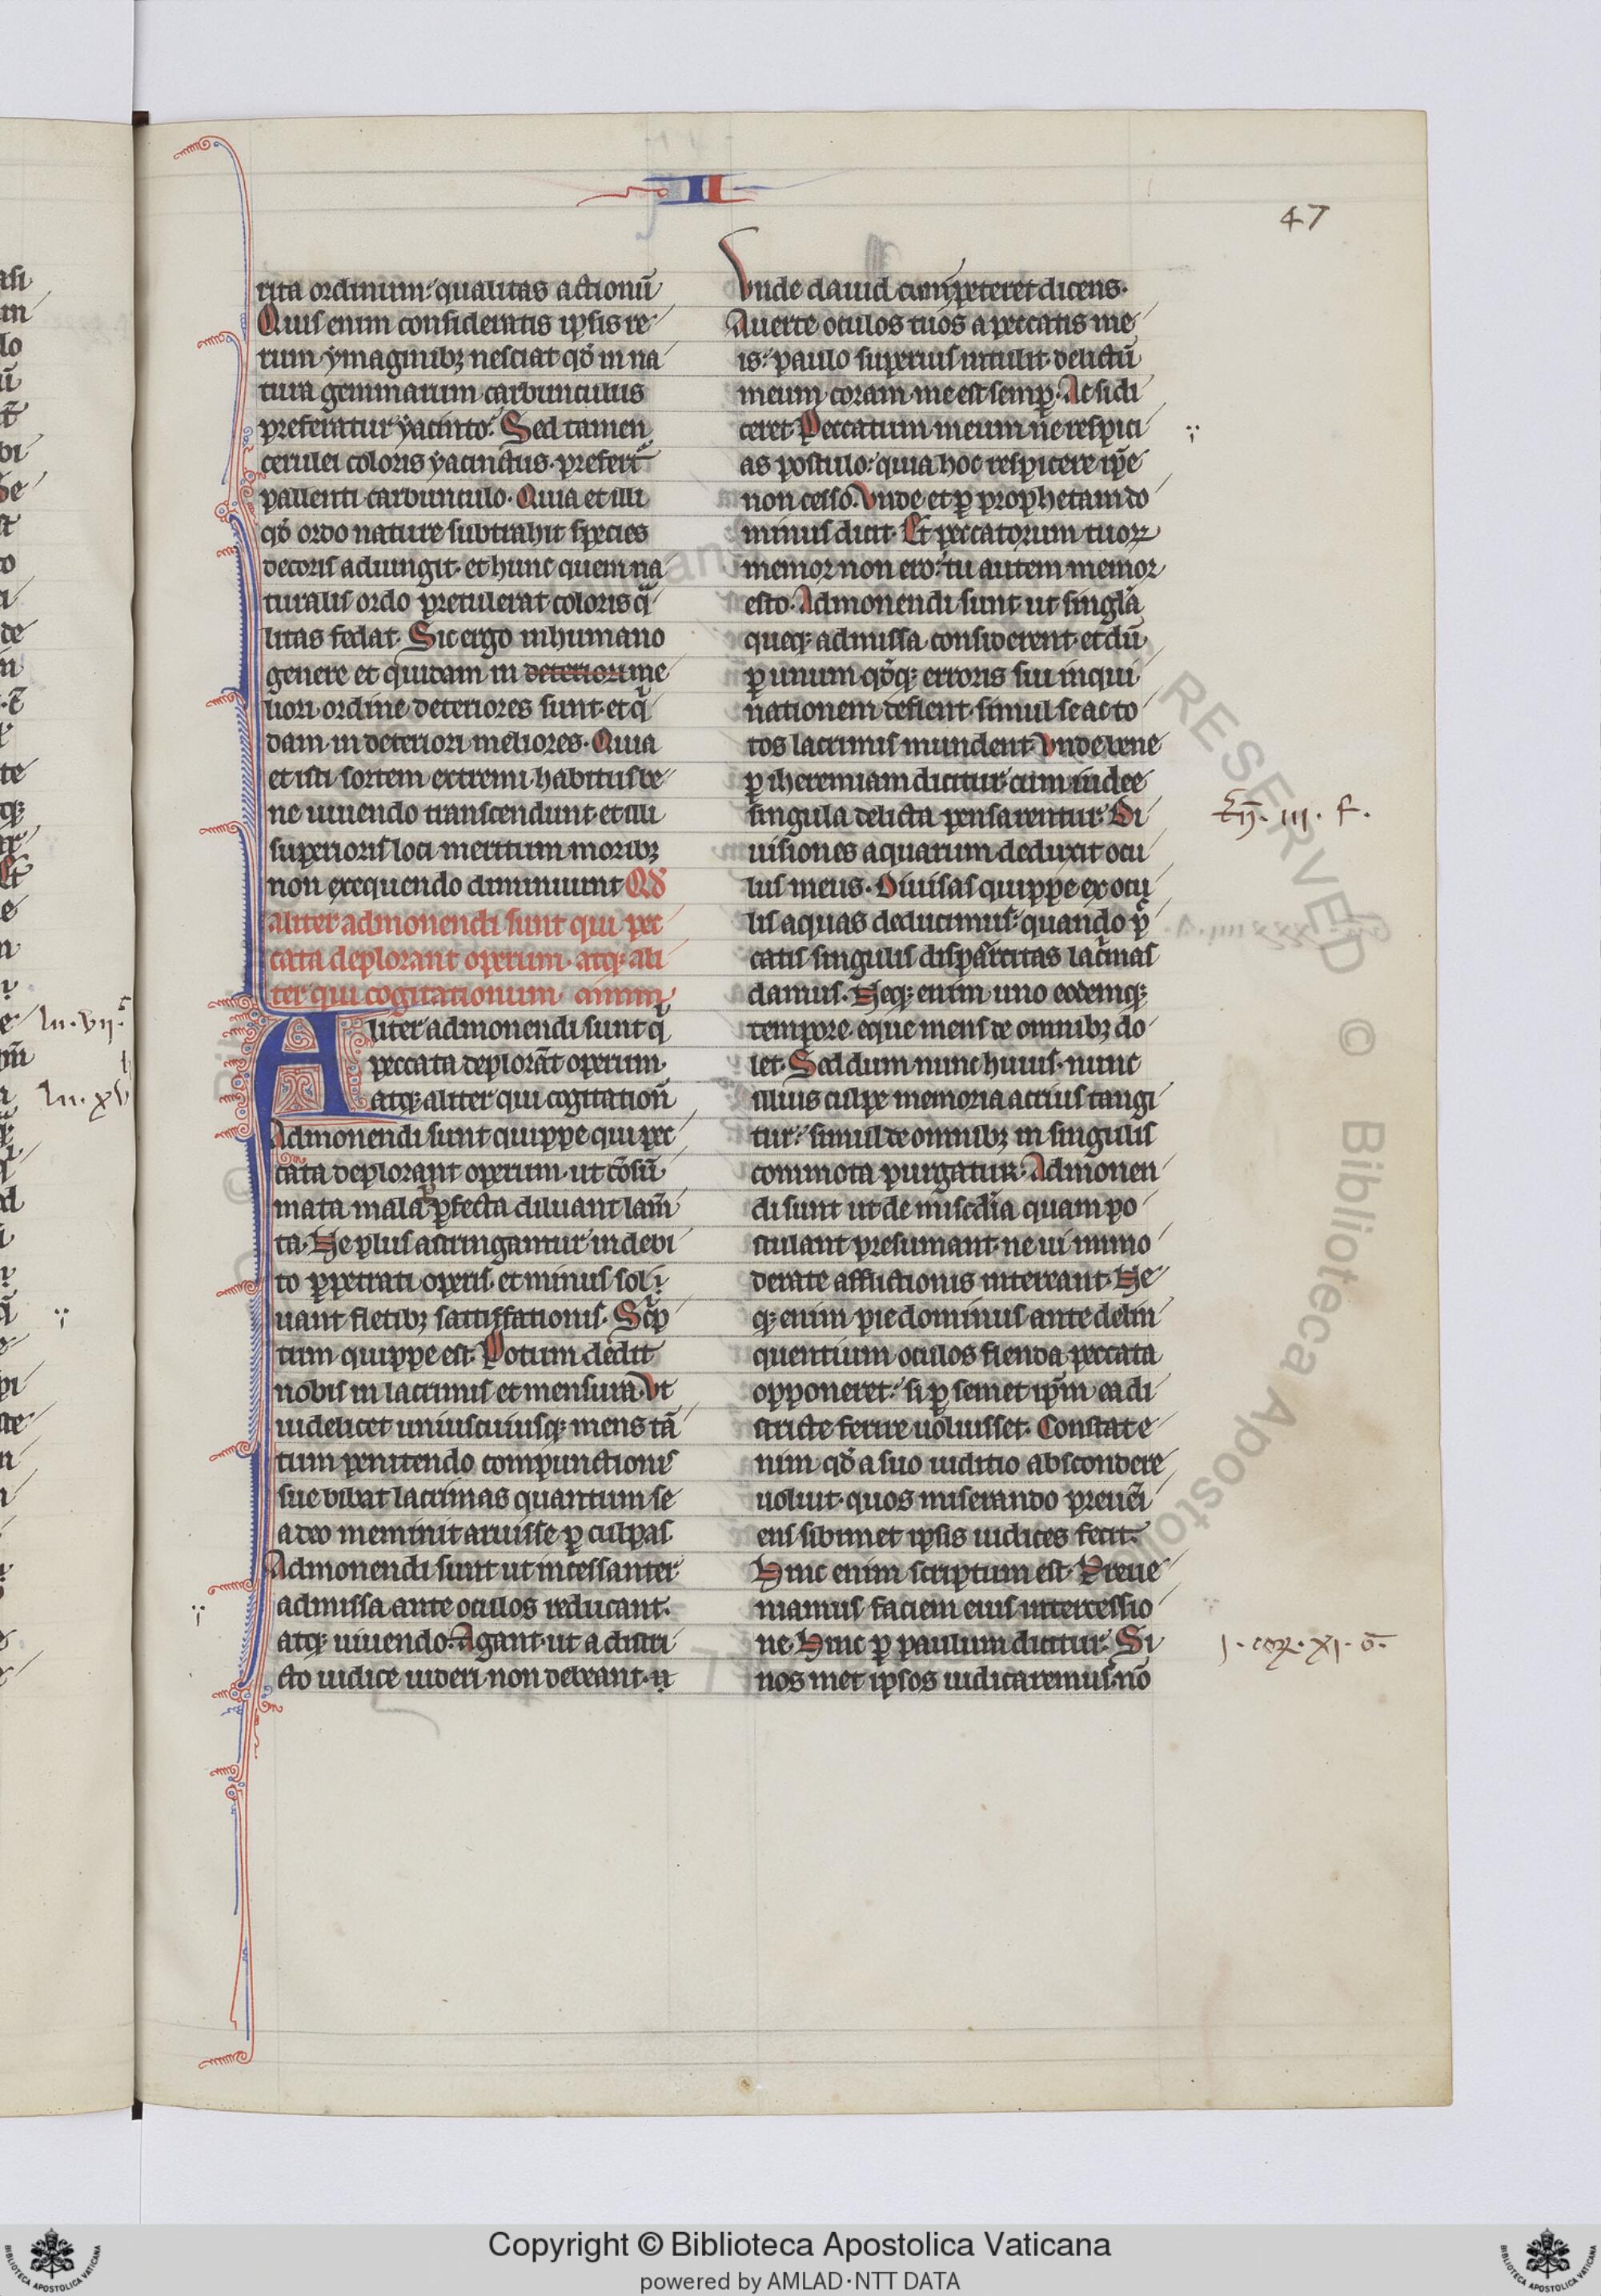 II
47
rita ordinum: qualitas actionū
Quis enim consideratis ipsis re
rum ymaginibꝫ nesciat qđ in na
tura gemmarum carbunculus
preferatur yacinto. Sed tamen
cerulei coloris yacinctus. prefert᷑
pallenti carbunculo. Quia et illi
qđ ordo nature subtrahit species
decoris adiungit. et hunc quem na
turalis ordo pretulerat coloris qͣ
litas fedat. Sic ergo in humano
genere et quidam in deteriori me
liori ordine deteriores sunt. et qͥ
dam in deteriori meliores. Quia
et isti sortem extremi habitus be
ne uiuendo transcendunt. et illi
superioris loci meritum moribꝫ
non exequendo diminuunt Qđ
aliter admonendi sunt qui pec
cata deplorant operum. atqꝫ ali
ter qui cogitationum
Aliter admonendi sunt qͥ
peccata deplorāt operum.
atqꝫ aliter qui cogitationū
Admonendi sunt quippe qui pec
cata deplorant operum. ut cōsū
mata mala ꝑfecta diluant lam̄
ta. Ne plus astringantur in debi
to ꝑpetrati operis. et minus sol
uant fletibꝫ satisffationis. Scͥp
tum quippe est. Potum dedit
nobis in lacrimis et mensura. Vt
uidelicet uniuscuiusqꝫ mens tā
tum penitendo compunctionis
sue bibat lacrimas quantum se
a deo meminit aruisse ꝑ culpas
Admonendi sunt ut incessanter
admissa ante oculos reducant.
atqꝫ uiuendo. Agant. ut a distri
cto iudice uideri non debeant.
Vnde dauid cum peteret dicens.
Auerte oculos tuos a peccatis me
is: paulo superius intulit. delictū
meum coram me est semꝑ. Ac si di
ceret. Peccatum meum ne respici
as postulo: quia hoc respicere ip̄e
non cesso. Vnde et ꝑ prophetam do
minus dicit. Et peccatorum tuoꝝ
memor non ero: tu autem memor
esto. Admonendi sunt ut singla
queqꝫ admissa considerent. et dū
ꝑ unum qđqꝫ erroris sui inqui
nationem deflent. simul se ac to
tos lacrimis mundent. Vnde bene
ꝑ iheremiam dicitur. cum iudee
singula delicta pensarentur. Di
uisiones aquarum deduxit ocu
lus meus. Diuisas quippe ex ocu
lis aquas deducimus: quando pͨ
catis singulis dispartitas lacͥmas
damus. Neqꝫ enim uno eodemqꝫ
tempore eque mens de omnibꝫ do
let. Sed dum nunc huius. nunc
illius culpe memoria acrius tangi
tur: simul de omnibꝫ in singulis
commota purgatur. Admonen
di sunt ut de misc̄dia quam po
stulant presumant. ne ui immo
derate afflictionis intereant. Ne
qꝫ enim pie dominus ante delin
quentium oculos flenda peccata
opponeret: si ꝑ semet ip̄m ea di
stricte ferire uoluisset. Constat e
nim qđ a suo iuditio abscondere
uoluit. quos miserando preuēi
ens sibimet ipsis iudices fecit.
Hinc enim scriptum est. Preue
niamus faciem eius intercessio
ne. Hinc ꝑ paulum dicitur. Si
nos met ipsos iudicaremus. nō
Tr̄. iii. f.
j. coꝝ. xj. ḡ.
lu. vii.
lu. xv
Copyright © Biblioteca Apostolica Vaticana
powered by AMLAD·NTT DATA